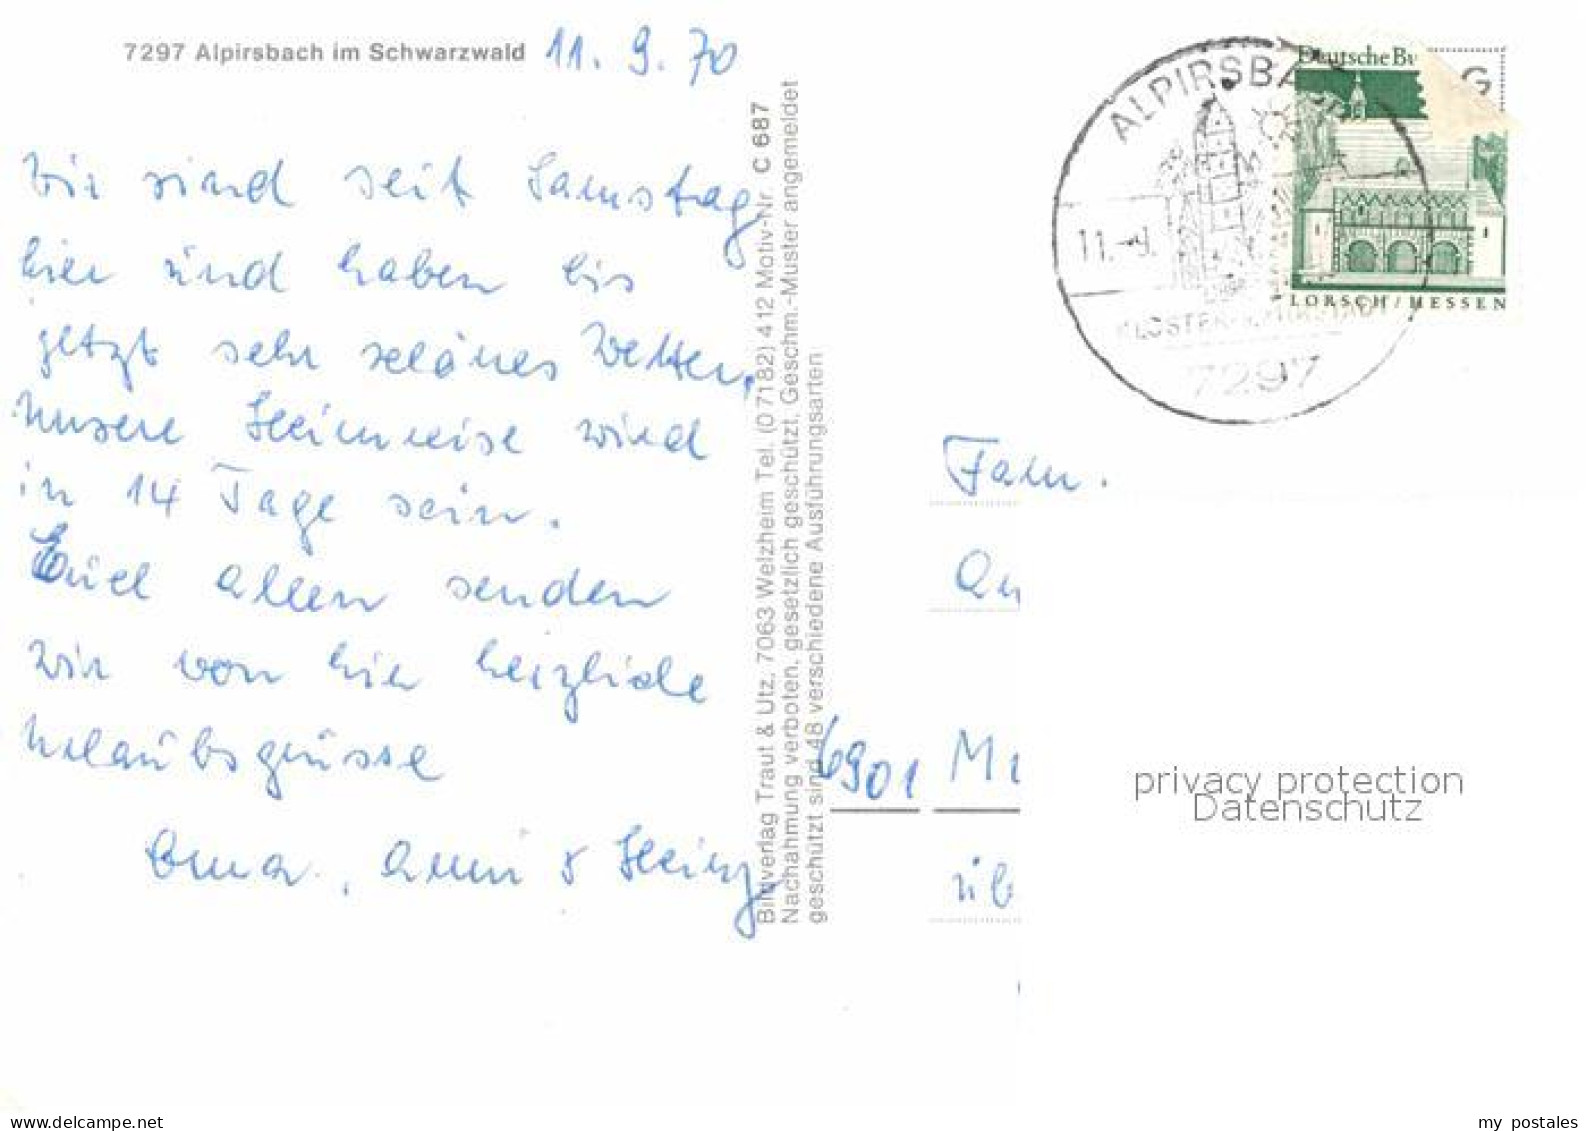 7297 Alpirsbach im Schwarzwald 11.9.70
Wir sind seit Samstag
hier und haben bis
jetzt sehr schönes Wetter,
unsere Heimreise wird
in 14 Tage sein.
Euch allen senden
wir von hier herzliche
Urlaubsgrüsse
Oma, Anni & Heinz
Bildverlag Traut & Utz, 7063 Welzheim Tel. (07182) 412 Motiv-Nr. C 687
Nachahmung verboten, gesetzlich geschützt, Geschm.-Muster angemeldet
geschützt sind 48 verschiedene Ausführungsarten
Deutsche Bu
G
LORSCH/HESSEN
ALPIRSBACH
11.-9.
7297
Fam.
6901
üb
privacy protection
Datenschutz
https://www.delcampe.net
my postales